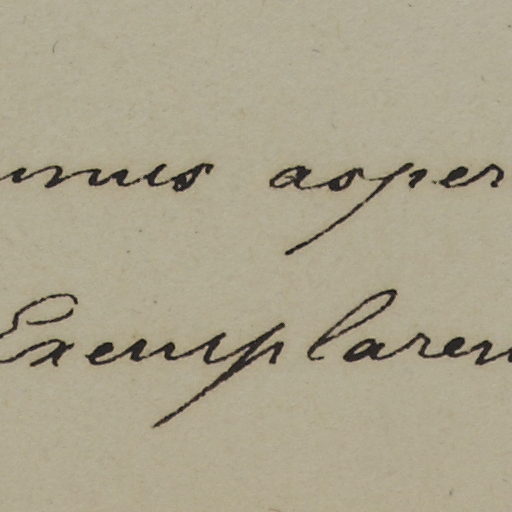 unus asper
Exemplaren